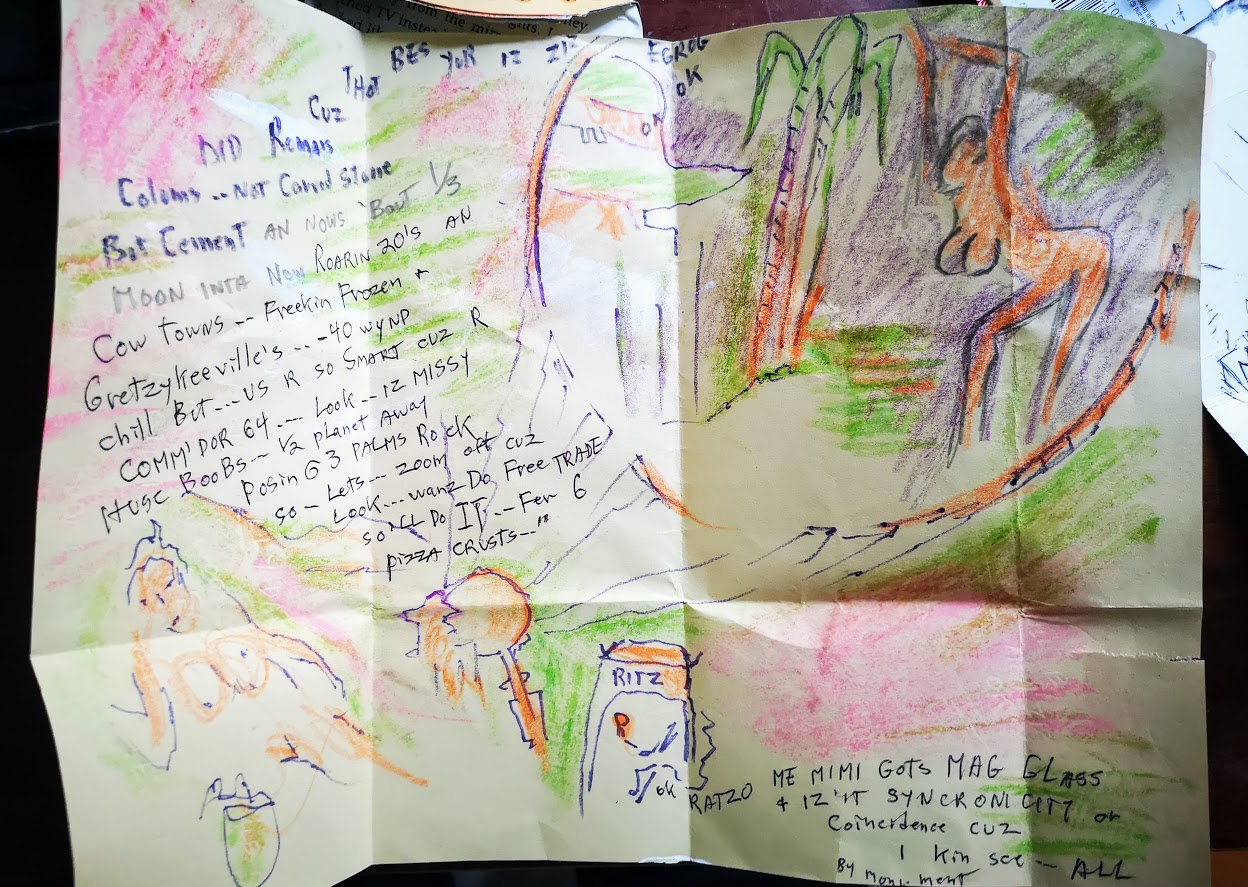 from the mir
ched TV inste
outs. I
they
EGROG
OK
THOT BES YUR IZ
CUZ
DID Remans
Colums -- Not Carvd Stane
But Cement AN NOWS 'Bout 1/3
MOON INTA New ROARIN 20's AN
Cow Towns -- Freekin Frozen +
Gretzykeeville's -- -40 WYNP
chill But --- US R so SMART cuz R
COMM'DOR 64 --- Look -- IZ MISSY
Huge BooBs -- 1/2 planet Away
posin @ 3 PALMS Rock
so - Lets --- zoom off cuz
Look --- wanz Do Free TRADE
so 'LL Do IT -- Fer 6
pizza crusts --"
RITZ
R
OK
RATZO
ME MIMI GOTS MAG GLASS
+ IZ'IT SYNCRONICITY or
Coinerdence cuz
I kin see -- ALL
By Monument